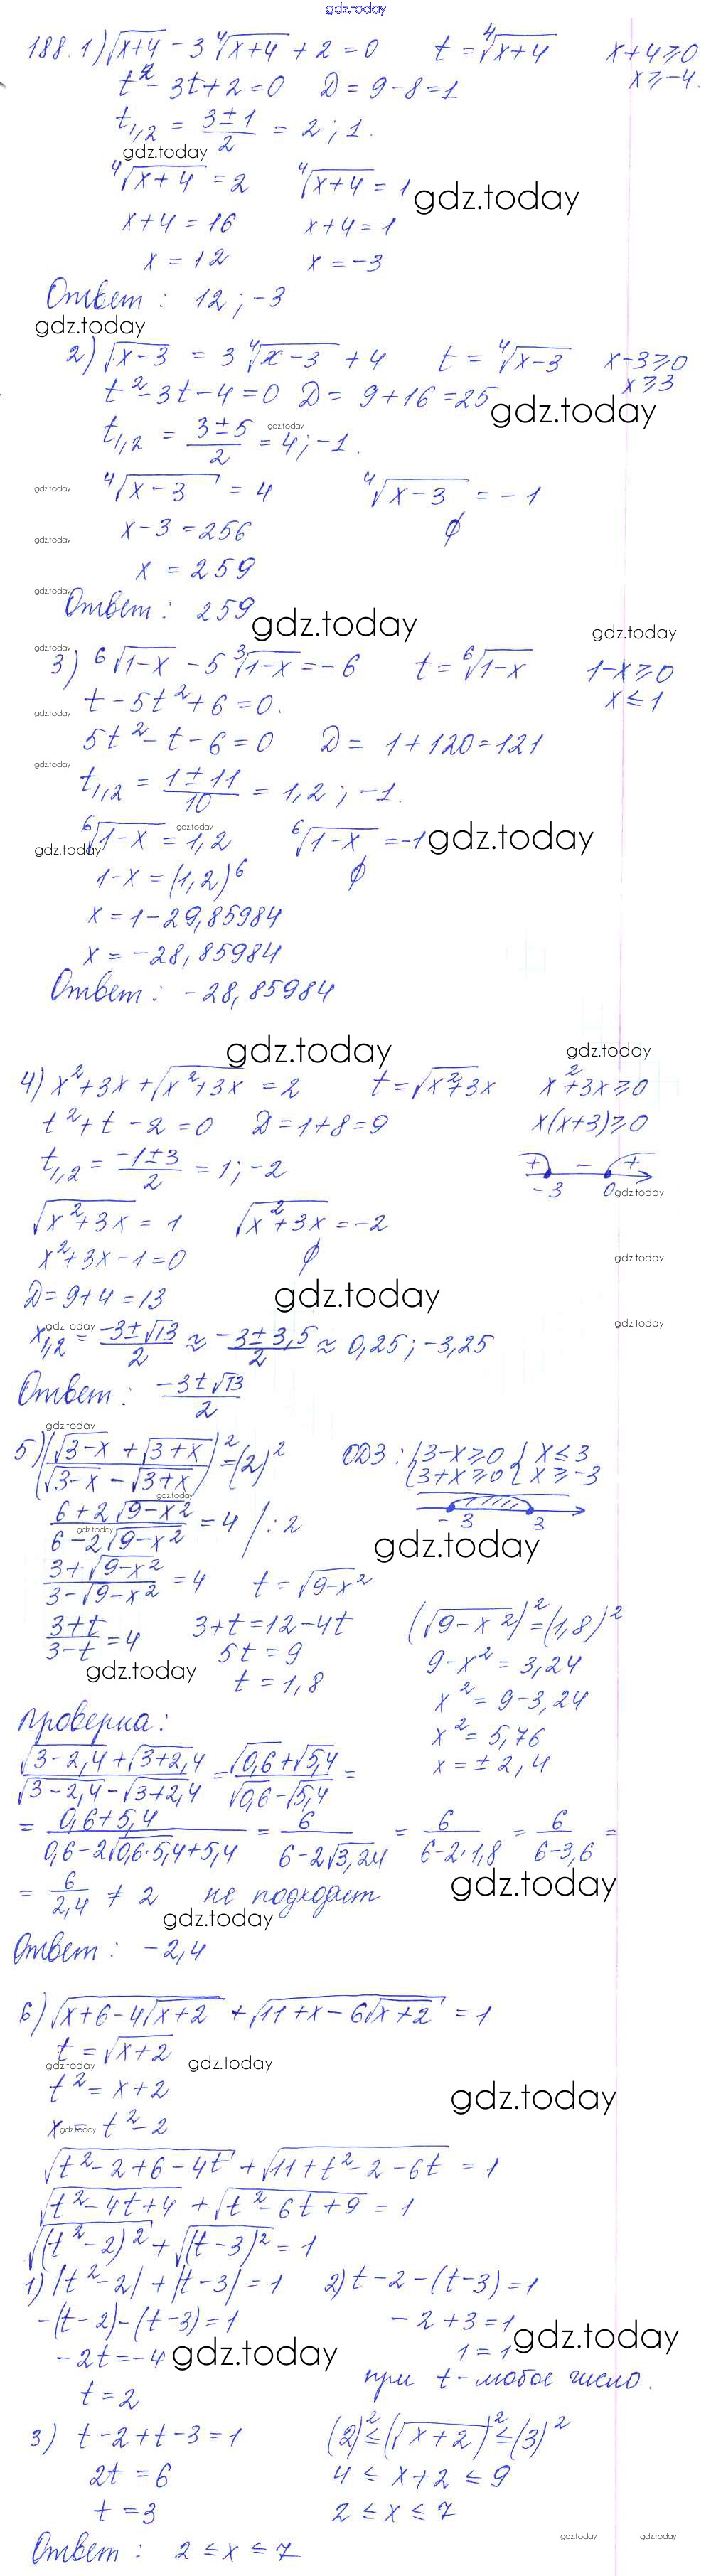 gdz.today
188. 1) √(x+4) - 3 ⁴√(x+4) + 2 = 0   t = ⁴√(x+4)   x+4 ≥ 0
t² - 3t + 2 = 0   D = 9 - 8 = 1   x ≥ -4.
t₁,₂ = (3 ± 1)/2 = 2; 1.
gdz.today
⁴√(x+4) = 2   ⁴√(x+4) = 1   gdz.today
x+4 = 16   x+4 = 1
x = 12   x = -3
Ответ: 12; -3
gdz.today
2) √(x-3) = 3 ⁴√(x-3) + 4   t = ⁴√(x-3)   x-3 ≥ 0
t² - 3t - 4 = 0   D = 9 + 16 = 25   x ≥ 3
gdz.today
t₁,₂ = (3 ± 5)/2 = 4; -1.   gdz.today
gdz.today   ⁴√(x-3) = 4   ⁴√(x-3) = -1
gdz.today   x-3 = 256   ∅
x = 259
gdz.today
Ответ: 259   gdz.today
gdz.today
gdz.today
3) ⁶√(1-x) - 5 ³√(1-x) = -6   t = ⁶√(1-x)   1-x ≥ 0
t - 5t² + 6 = 0.   x ≤ 1
gdz.today
5t² - t - 6 = 0   D = 1 + 120 = 121
gdz.today
t₁,₂ = (1 ± 11)/10 = 1,2; -1.
gdz.today
⁶√(1-x) = 1,2   ⁶√(1-x) = -1   gdz.today
gdz.today
1-x = (1,2)⁶   ∅
x = 1 - 29,85984
x = -28,85984
Ответ: -28,85984
gdz.today   gdz.today
4) x² + 3x + √(x²+3x) = 2   t = √(x²+3x)   x²+3x ≥ 0
t² + t - 2 = 0   D = 1 + 8 = 9   x(x+3) ≥ 0
t₁,₂ = (-1 ± 3)/2 = 1; -2   + - +
-3   0   gdz.today
√(x²+3x) = 1   √(x²+3x) = -2
x² + 3x - 1 = 0   ∅   gdz.today
D = 9 + 4 = 13   gdz.today
gdz.today   gdz.today
x₁,₂ = (-3 ± √13)/2 ≈ (-3 ± 3,5)/2 ≈ 0,25; -3,25
Ответ: (-3 ± √13)/2
gdz.today
5) ((√(3-x) + √(3+x))/(√(3-x) - √(3+x)))² = (2)²   ОДЗ: {3-x ≥ 0 {x ≤ 3
{3+x ≥ 0 {x ≥ -3
gdz.today
(6 + 2√(9-x²))/(6 - 2√(9-x²)) = 4 /: 2   -3   3
gdz.today   gdz.today
(3 + √(9-x²))/(3 - √(9-x²)) = 4   t = √(9-x²)
(3+t)/(3-t) = 4   3+t = 12-4t   (√(9-x²))² = (1,8)²
5t = 9   9-x² = 3,24
gdz.today   t = 1,8   x² = 9-3,24
Проверка:   x² = 5,76
x = ± 2,4
(√(3-2,4) + √(3+2,4))/(√(3-2,4) - √(3+2,4)) = (√0,6 + √5,4)/(√0,6 - √5,4) =
= (0,6+5,4)/(0,6 - 2√(0,6·5,4) + 5,4) = 6/(6 - 2√3,24) = 6/(6-2·1,8) = 6/(6-3,6) =
= 6/2,4 ≠ 2   не подходит   gdz.today
gdz.today
Ответ: -2,4
6) √(x+6-4√(x+2)) + √(11+x-6√(x+2)) = 1
t = √(x+2)
gdz.today   gdz.today
t² = x+2   gdz.today
x = t² - 2
gdz.today
√(t²-2+6-4t) + √(11+t²-2-6t) = 1
√(t²-4t+4) + √(t²-6t+9) = 1
√((t²-2)²) + √((t-3)²) = 1
1) |t²-2| + |t-3| = 1   2) t-2-(t-3) = 1
-(t-2)-(t-3) = 1   -2+3 = 1
-2t = -4   gdz.today   1 = 1   gdz.today
t = 2   при t - любое число.
3) t-2+t-3 = 1   (2)² ≤ (√(x+2))² ≤ (3)²
2t = 6   4 ≤ x+2 ≤ 9
t = 3   2 ≤ x ≤ 7
Ответ: 2 ≤ x ≤ 7   gdz.today   gdz.today